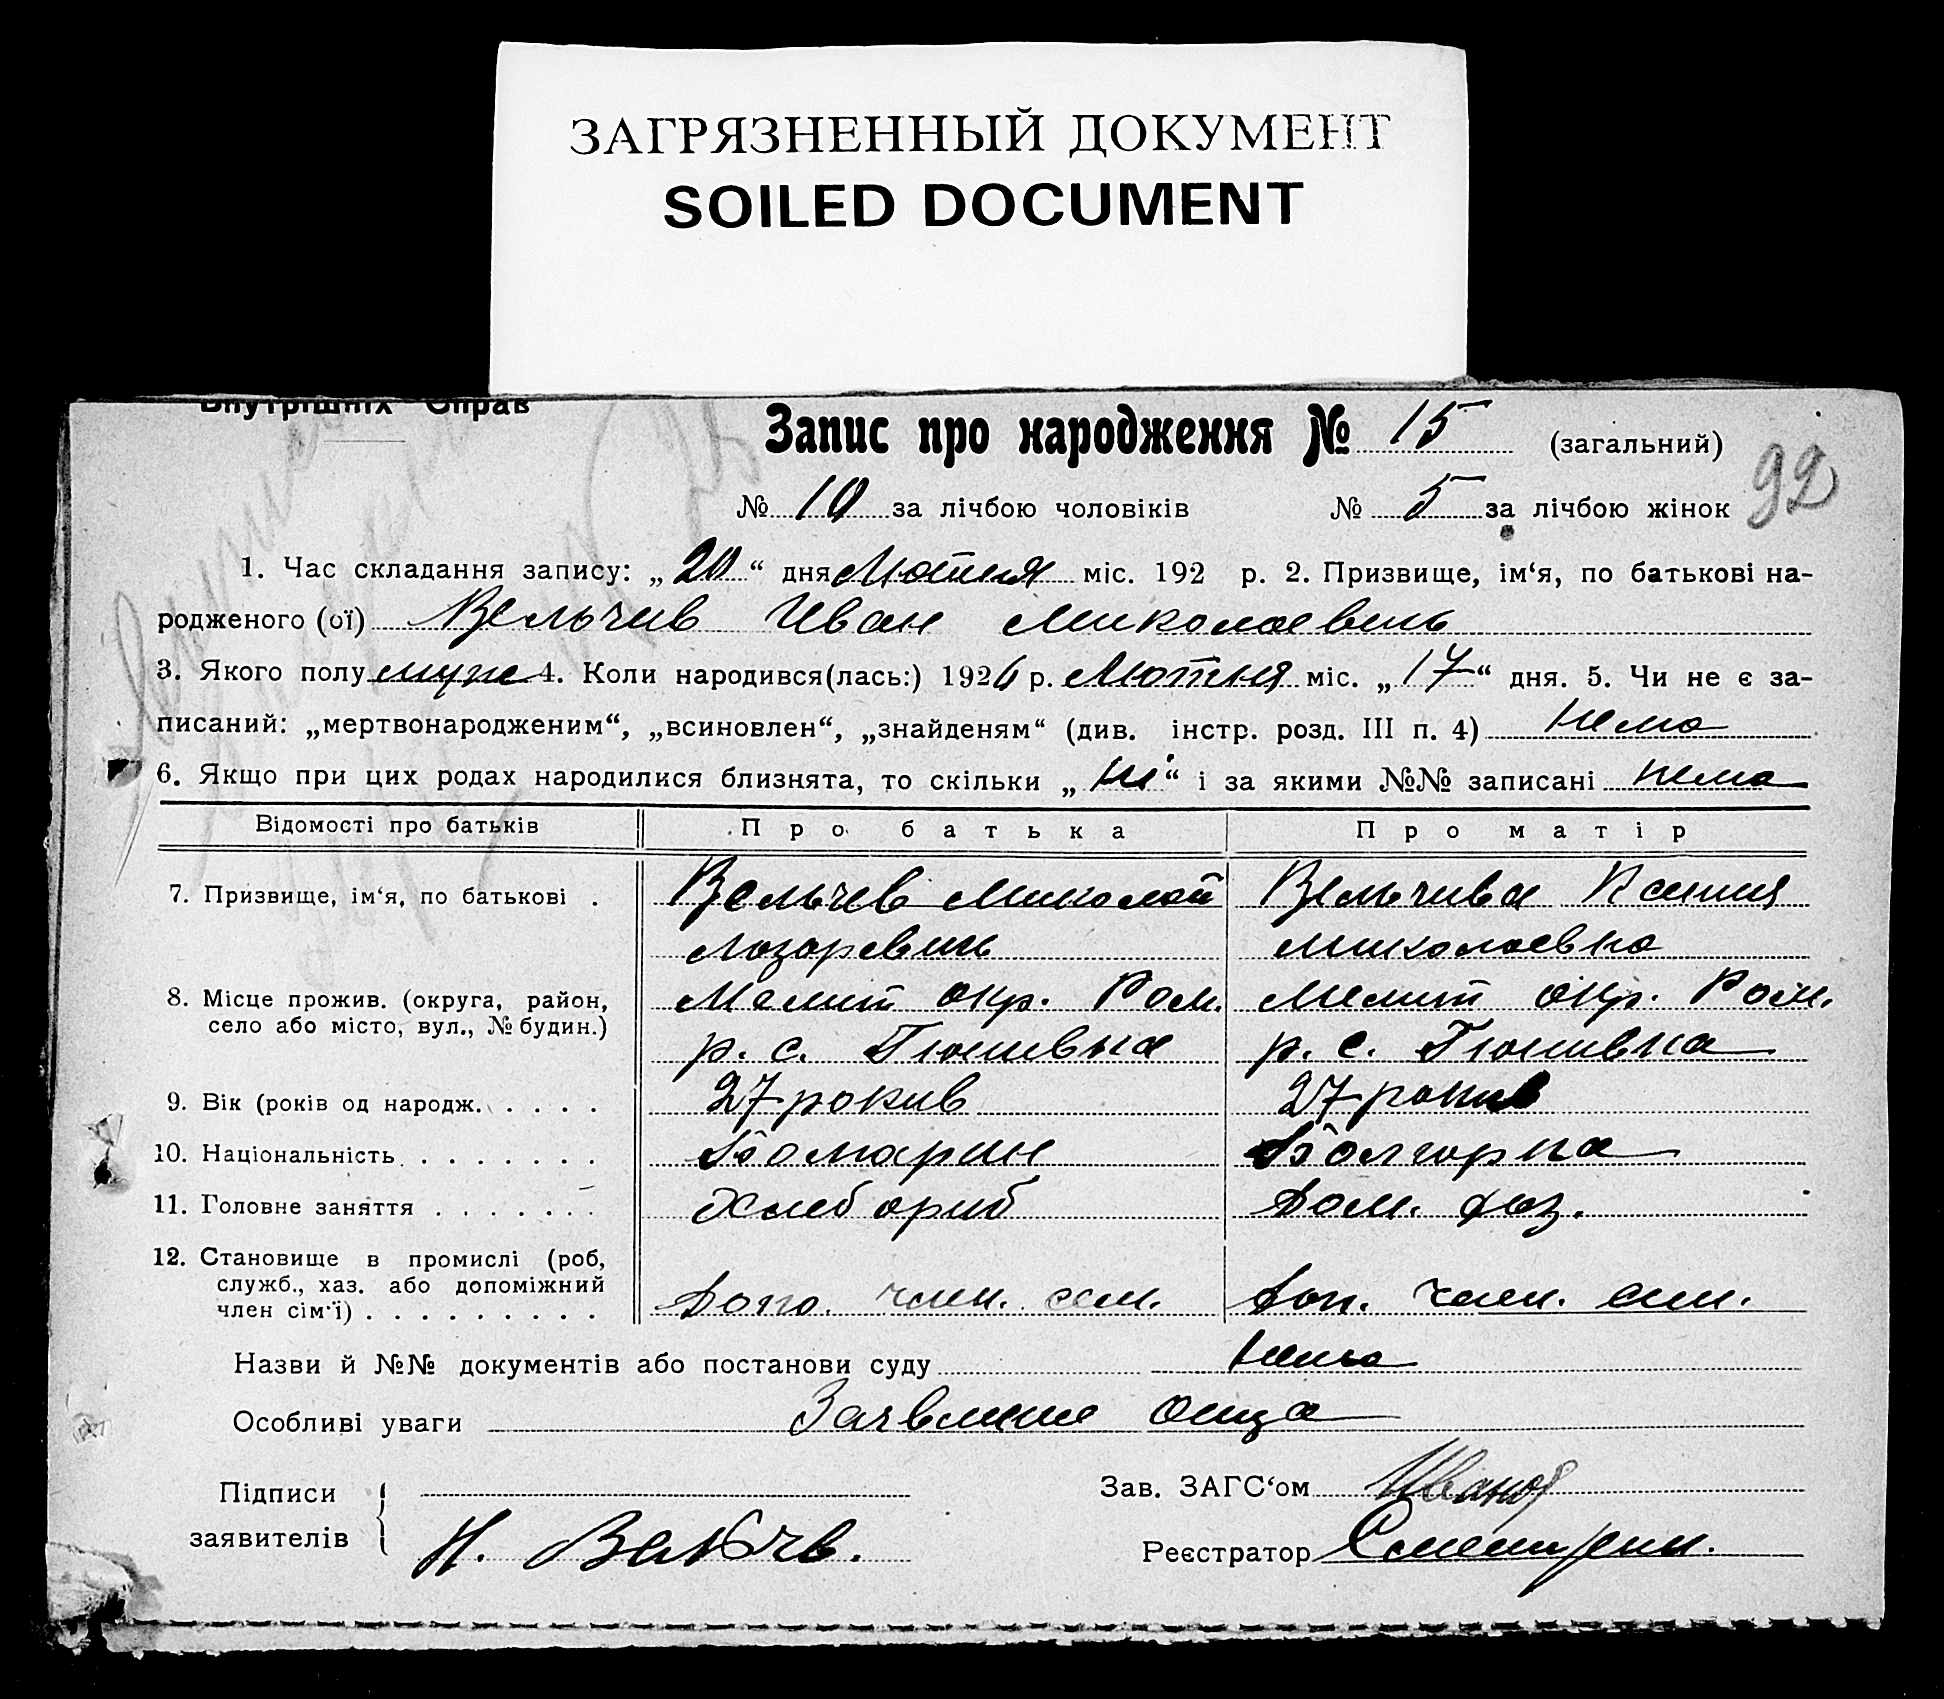 ЗАГРЯЗНЕННЫЙ ДОКУМЕНТ
SOILED DOCUMENT
Внутрішніх Справ
Запис про народження № 15 (загальний)
92
№ 10 за лічбою чоловіків № 5 за лічбою жінок
1. Час складання запису: „20“ дня Лютня міс. 192 р. 2. Призвище, ім‘я, по батькові на-
родженого (ої) Вельчив Иван Миколаевичь
3. Якого полу муж 4. Коли народився(лась:) 1926 р. Лютня міс. „17“ дня. 5. Чи не є за-
писаний: „мертвонародженим“, „всиновлен“, „знайденям“ (див. інстр. розд. III п. 4) нема
6. Якщо при цих родах народилися близнята, то скільки „ні“ і за якими №№ записані нема
Відомості про батьків Про батька Про матір
7. Призвище, ім‘я, по батькові . Вельчев Миколай Вельчива Ксения
Лазаревич Миколаевна
8. Місце прожив. (округа, район, Мелит окр. Ром. Мелит окр. Ром.
село або місто, вул., № будин.) р. с. Гюнивка р. с. Гюнивка
9. Вік (років од народж. . . . . 27 рокив 27 рокив
10. Національність . . . . . . . . Болгарин Болгорка
11. Головне заняття . . . . . . . Хлебориб Дом. хоз.
12. Становище в промислі (роб,
служб., хаз. або допоміжний
член сім‘ї) . . . . . . . . . Допо. член. сем. Доп. член. сем.
Назви й №№ документів або постанови суду нема
Особливі уваги Заявление отца
Підписи Зав. ЗАГС‘ом Иванов
заявителів Н. Вельчв. Реєстратор